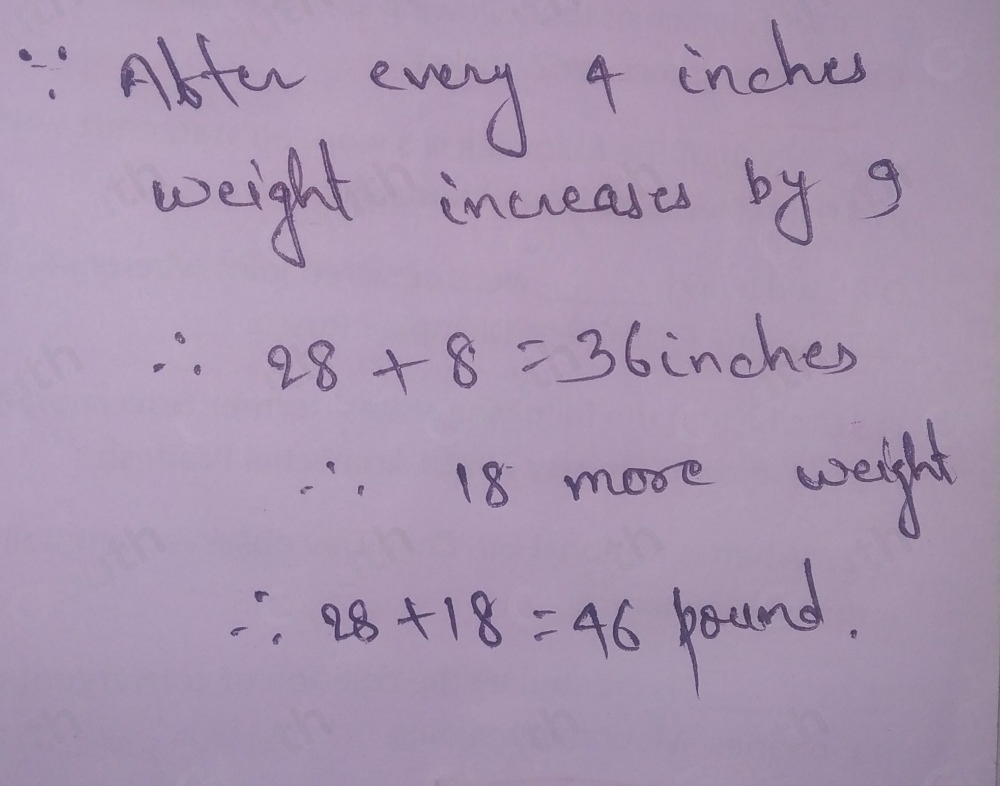 ∵ After every 4 inches
weight increases by 9
∴ 28 + 8 = 36 inches
∴ 18 more weight
∴ 28 + 18 = 46 pound.